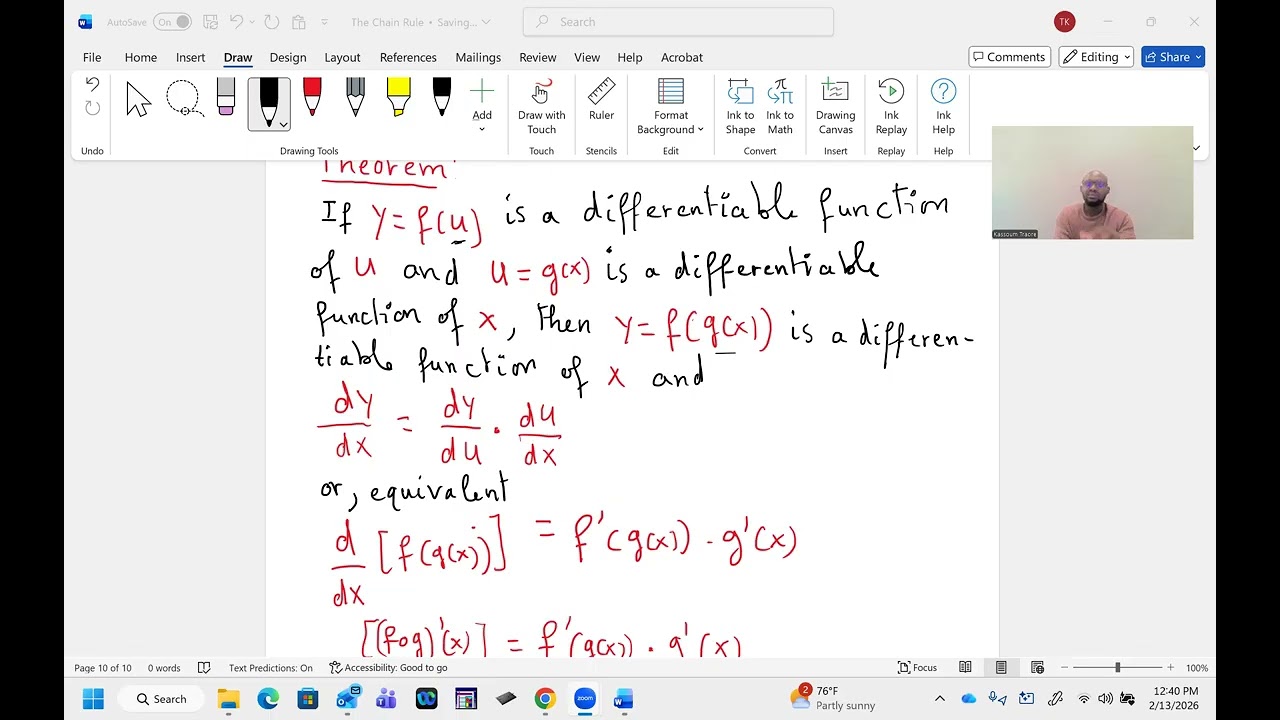 AutoSave On The Chain Rule • Saving... Search TK
File Home Insert Draw Design Layout References Mailings Review View Help Acrobat Comments Editing Share
Add Draw with Touch Ruler Format Background Ink to Shape Ink to Math Drawing Canvas Ink Replay Ink Help
Undo Drawing Tools Touch Stencils Edit Convert Insert Replay Help
Kassoum Traore
Theorem:
If y = f(u) is a differentiable function
of u and u = g(x) is a differentiable
function of x, then y = f(g(x)) is a differen-
tiable function of x and
dy/dx = dy/du · du/dx
or, equivalent
d/dx [f(g(x))] = f'(g(x)) · g'(x)
[(fog)'(x)] = f'(g(x)) · g'(x)
Page 10 of 10 0 words Text Predictions: On Accessibility: Good to go Focus 100%
Search zoom 2 76°F Partly sunny 12:40 PM 2/13/2026